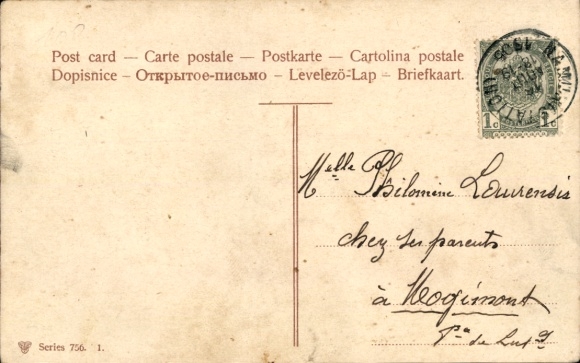 Post card — Carte postale — Postkarte — Cartolina postale
Dopisnice — Открытое-письмо — Levelezö-Lap — Briefkaart.
NAMUR STATION 1905
1c 1c
Melle Philomène Laurensis
chez ses parents
à Mogimont
Pce de Luxg
Series 756. 1.